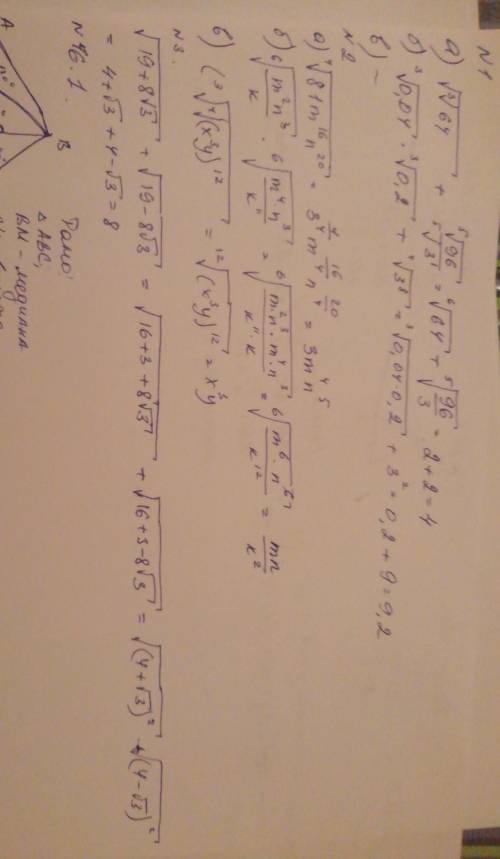 N1
а) √∛64 + ⁵√96 / ⁵√3 = ⁶√64 + ⁵√(96/3) = 2+2=4
б) ³√0,04 · ³√0,2 + ⁴√3⁸ = ³√0,04·0,2 + 3² = 0,2+9=9,2
в) –
N2
а) ⁴√81m¹⁶n²⁰ = 3^(4/4) m^(16/4) n^(20/4) = 3m⁴n⁵
б) ⁶√(m²n³/к) · ⁶√(m⁴n³/к¹¹) = ⁶√(m²·n³·m⁴·n³/к¹¹·к) = ⁶√(m⁶·n⁶/к¹²) = mn/к²
в) (³√⁴√(x³y))¹² = ¹²√(x³y)¹² = x³y
N3.
√19+8√3 + √19-8√3 = √16+3+8√3 + √16+3-8√3 = √(4+√3)² + √(4-√3)²
= 4+√3+4-√3=8
N46.1.
A
B
Дано:
△ABC,
BM - медиана